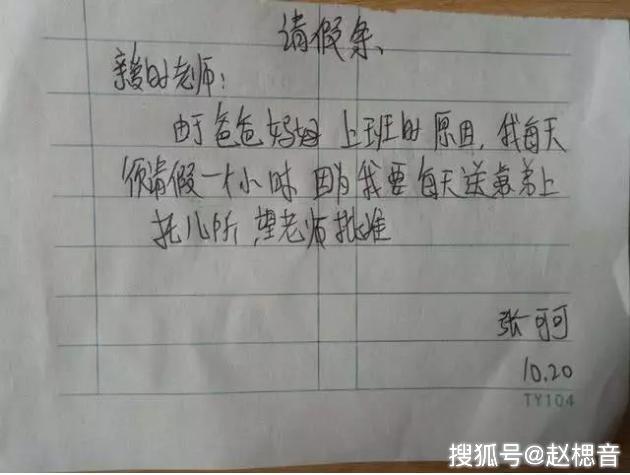 请假条、
亲爱的老师：
由于爸爸妈妈上班的原因，我每天
须请假一个小时 因为我要每天送弟弟上
托儿所，望老师批准
张可可
10.20
TY104
搜狐号@赵楒音